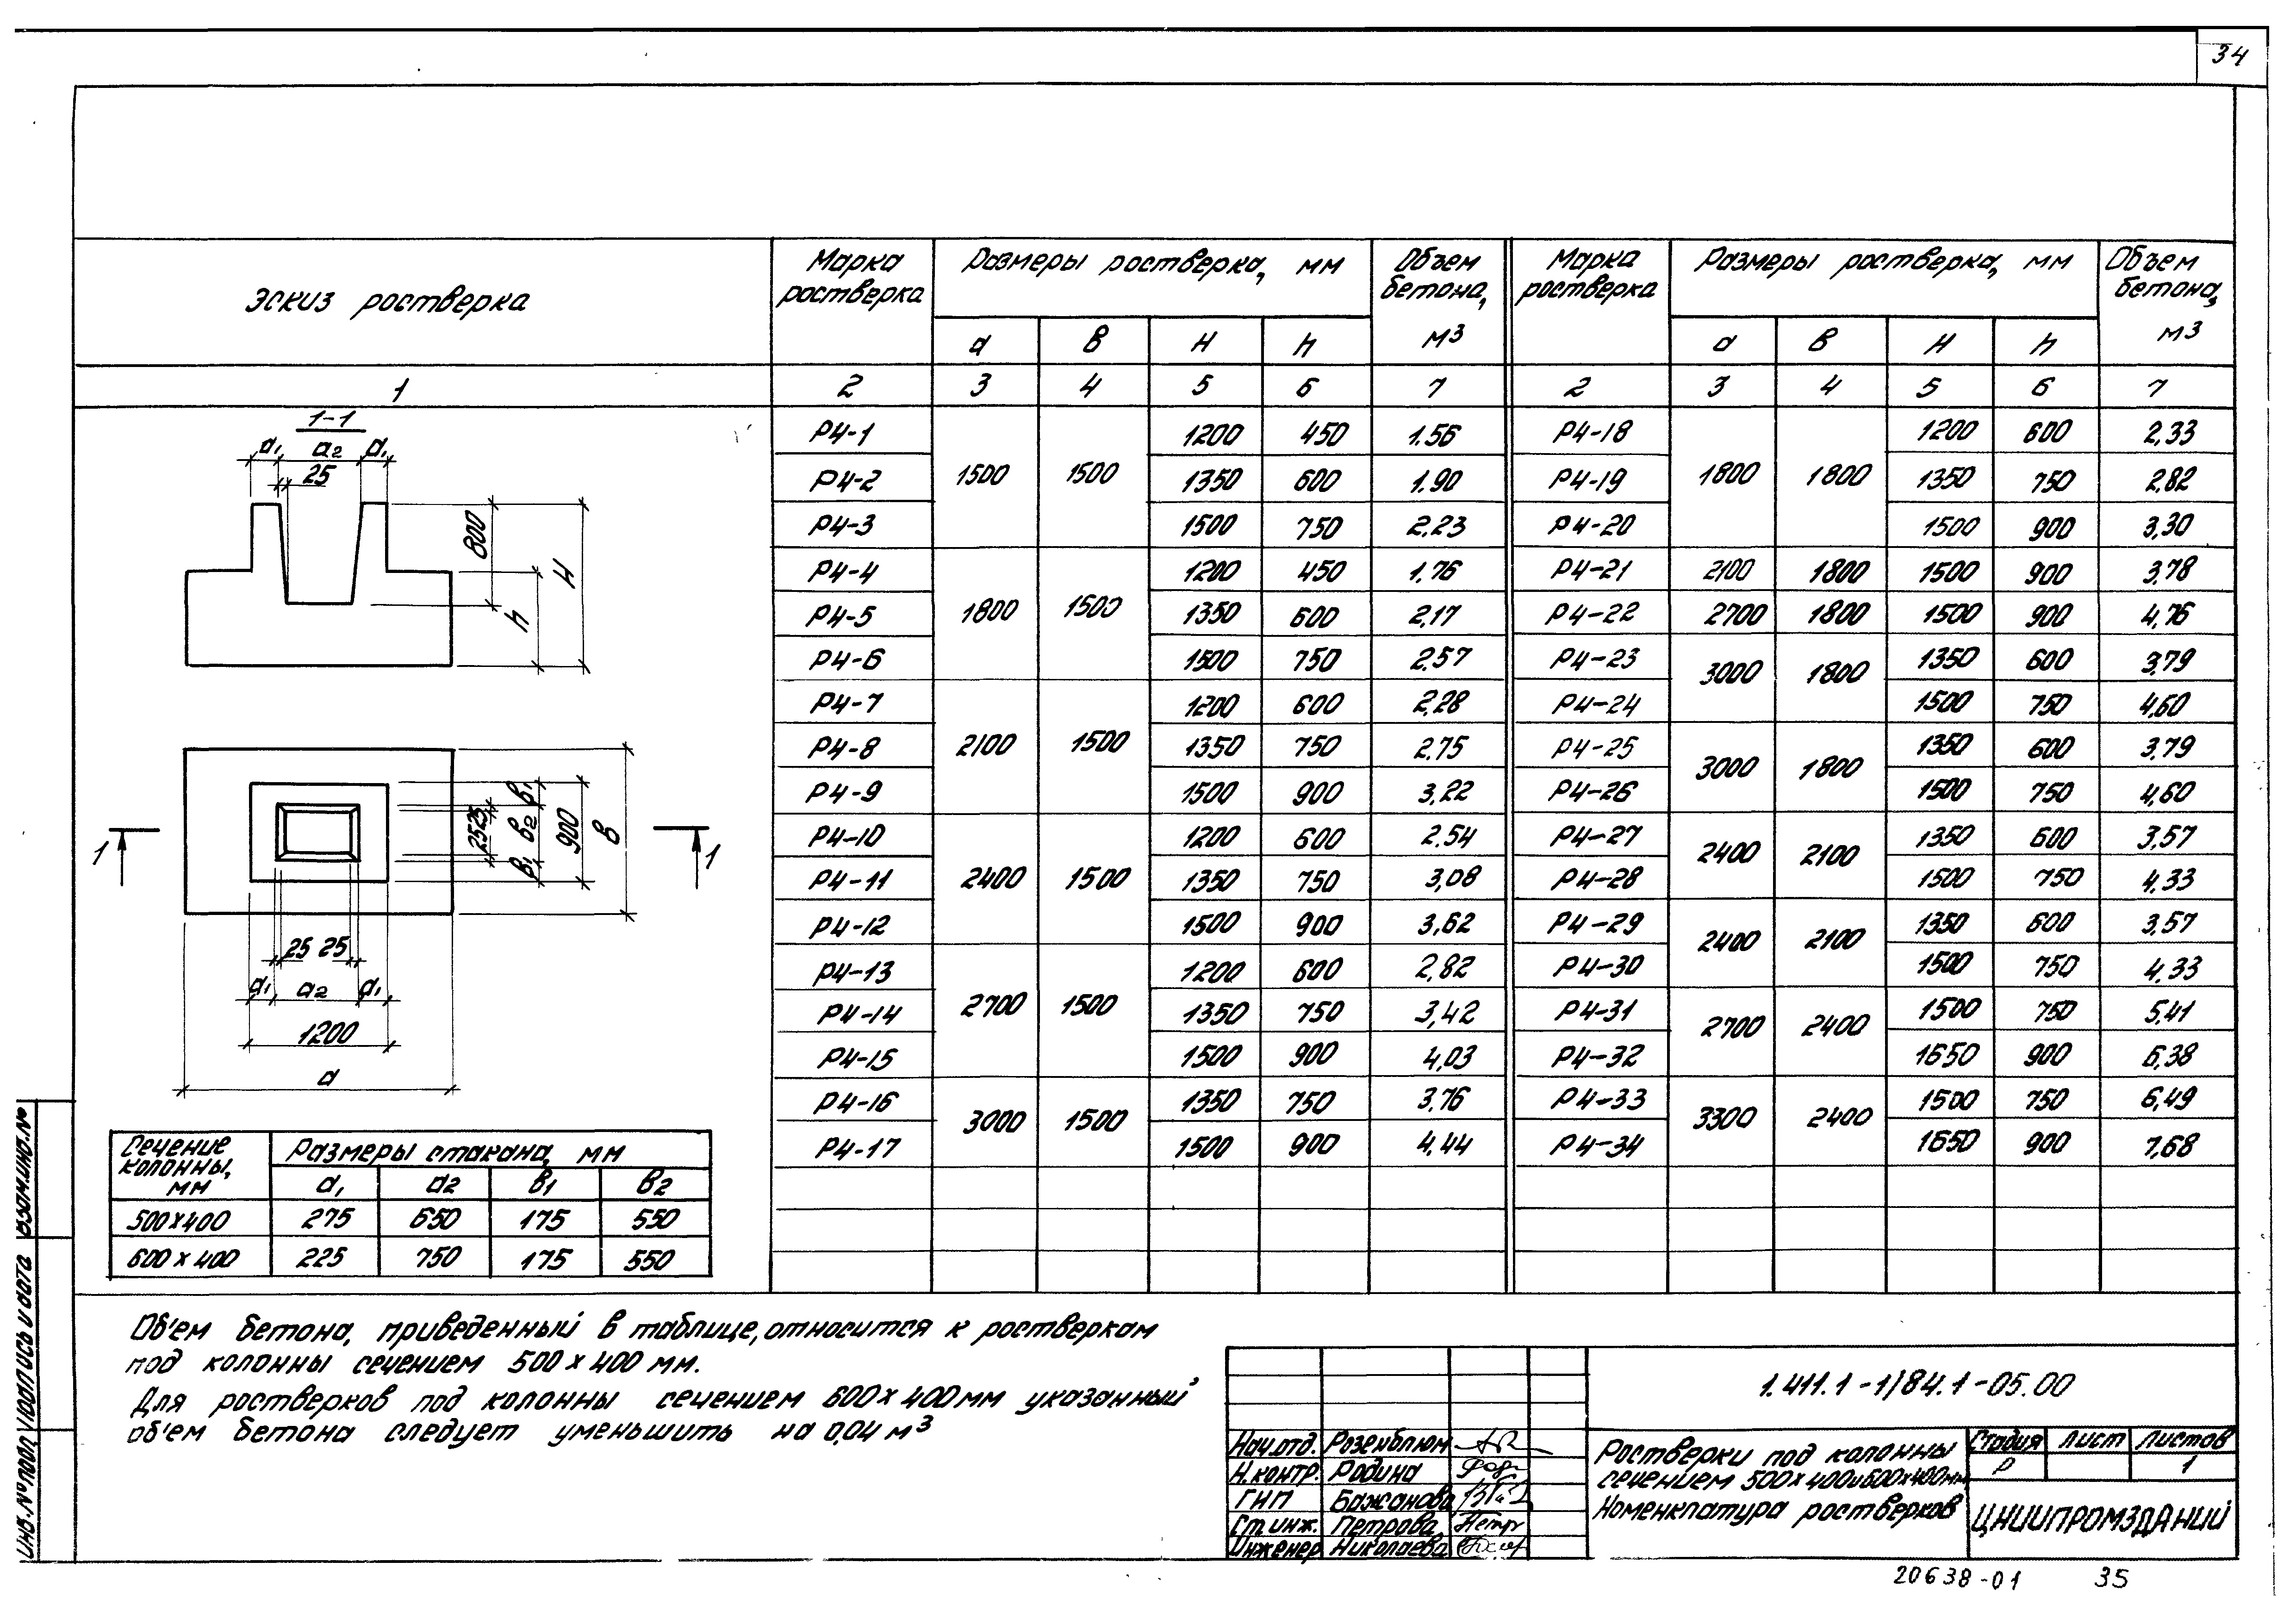 34
Эскиз ростверка
Марка ростверка
Размеры ростверка, мм
Объем бетона, м3
Марка ростверка
Размеры ростверка, мм
Объем бетона, м3
а в Н h а в Н h
1 2 3 4 5 6 7 2 3 4 5 6 7
Р4-1 1500 1500 1200 450 1.56 Р4-18 1800 1800 1200 600 2,33
Р4-2 1350 600 1.90 Р4-19 1350 750 2,82
Р4-3 1500 750 2.23 Р4-20 1500 900 3,30
Р4-4 1800 1500 1200 450 1.76 Р4-21 2100 1800 1500 900 3,78
Р4-5 1350 600 2,17 Р4-22 2700 1800 1500 900 4,76
Р4-6 1500 750 2.57 Р4-23 3000 1800 1350 600 3,79
Р4-7 2100 1500 1200 600 2,28 Р4-24 1500 750 4,60
Р4-8 1350 750 2.75 Р4-25 3000 1800 1350 600 3,79
Р4-9 1500 900 3,22 Р4-26 1500 750 4,60
Р4-10 2400 1500 1200 600 2.54 Р4-27 2400 2100 1350 600 3,57
Р4-11 1350 750 3,08 Р4-28 1500 750 4,33
Р4-12 1500 900 3,62 Р4-29 2400 2100 1350 600 3,57
Р4-13 2700 1500 1200 600 2,82 Р4-30 1500 750 4,33
Р4-14 1350 750 3,42 Р4-31 2700 2400 1500 750 5,41
Р4-15 1500 900 4,03 Р4-32 1650 900 6,38
Р4-16 3000 1500 1350 750 3.76 Р4-33 3300 2400 1500 750 6,49
Р4-17 1500 900 4,44 Р4-34 1650 900 7,68
1-1
а1 а2 а1
25
800
h
Н
1 1
25 25
в1 в2 в1
900
в
25 25
а1 а2 а1
1200
а
Сечение колонны, мм
Размеры стакана, мм
а1 а2 в1 в2
500х400 275 650 175 550
600 х 400 225 750 175 550
Об'ем бетона, приведенный в таблице, относится к ростверкам
под колонны сечением 500 х 400 мм.
Для ростверков под колонны сечением 600 х 400 мм указанный
об'ем бетона следует уменьшить на 0,04 м3
1.411.1-1/84.1-05.00
Нач.отд. Розенблюм
Н.контр. Родина
ГИП Бажанова
Ст.инж. Петрова
Инженер Николаева
Ростверки под колонны
сечением 500х400и600х400мм
Номенклатура ростверков
Стадия Лист Листов
Р 1
ЦНИИПРОМЗДАНИЙ
20638-01 35
Инв.№подл. Подпись и дата Взам.инв.№